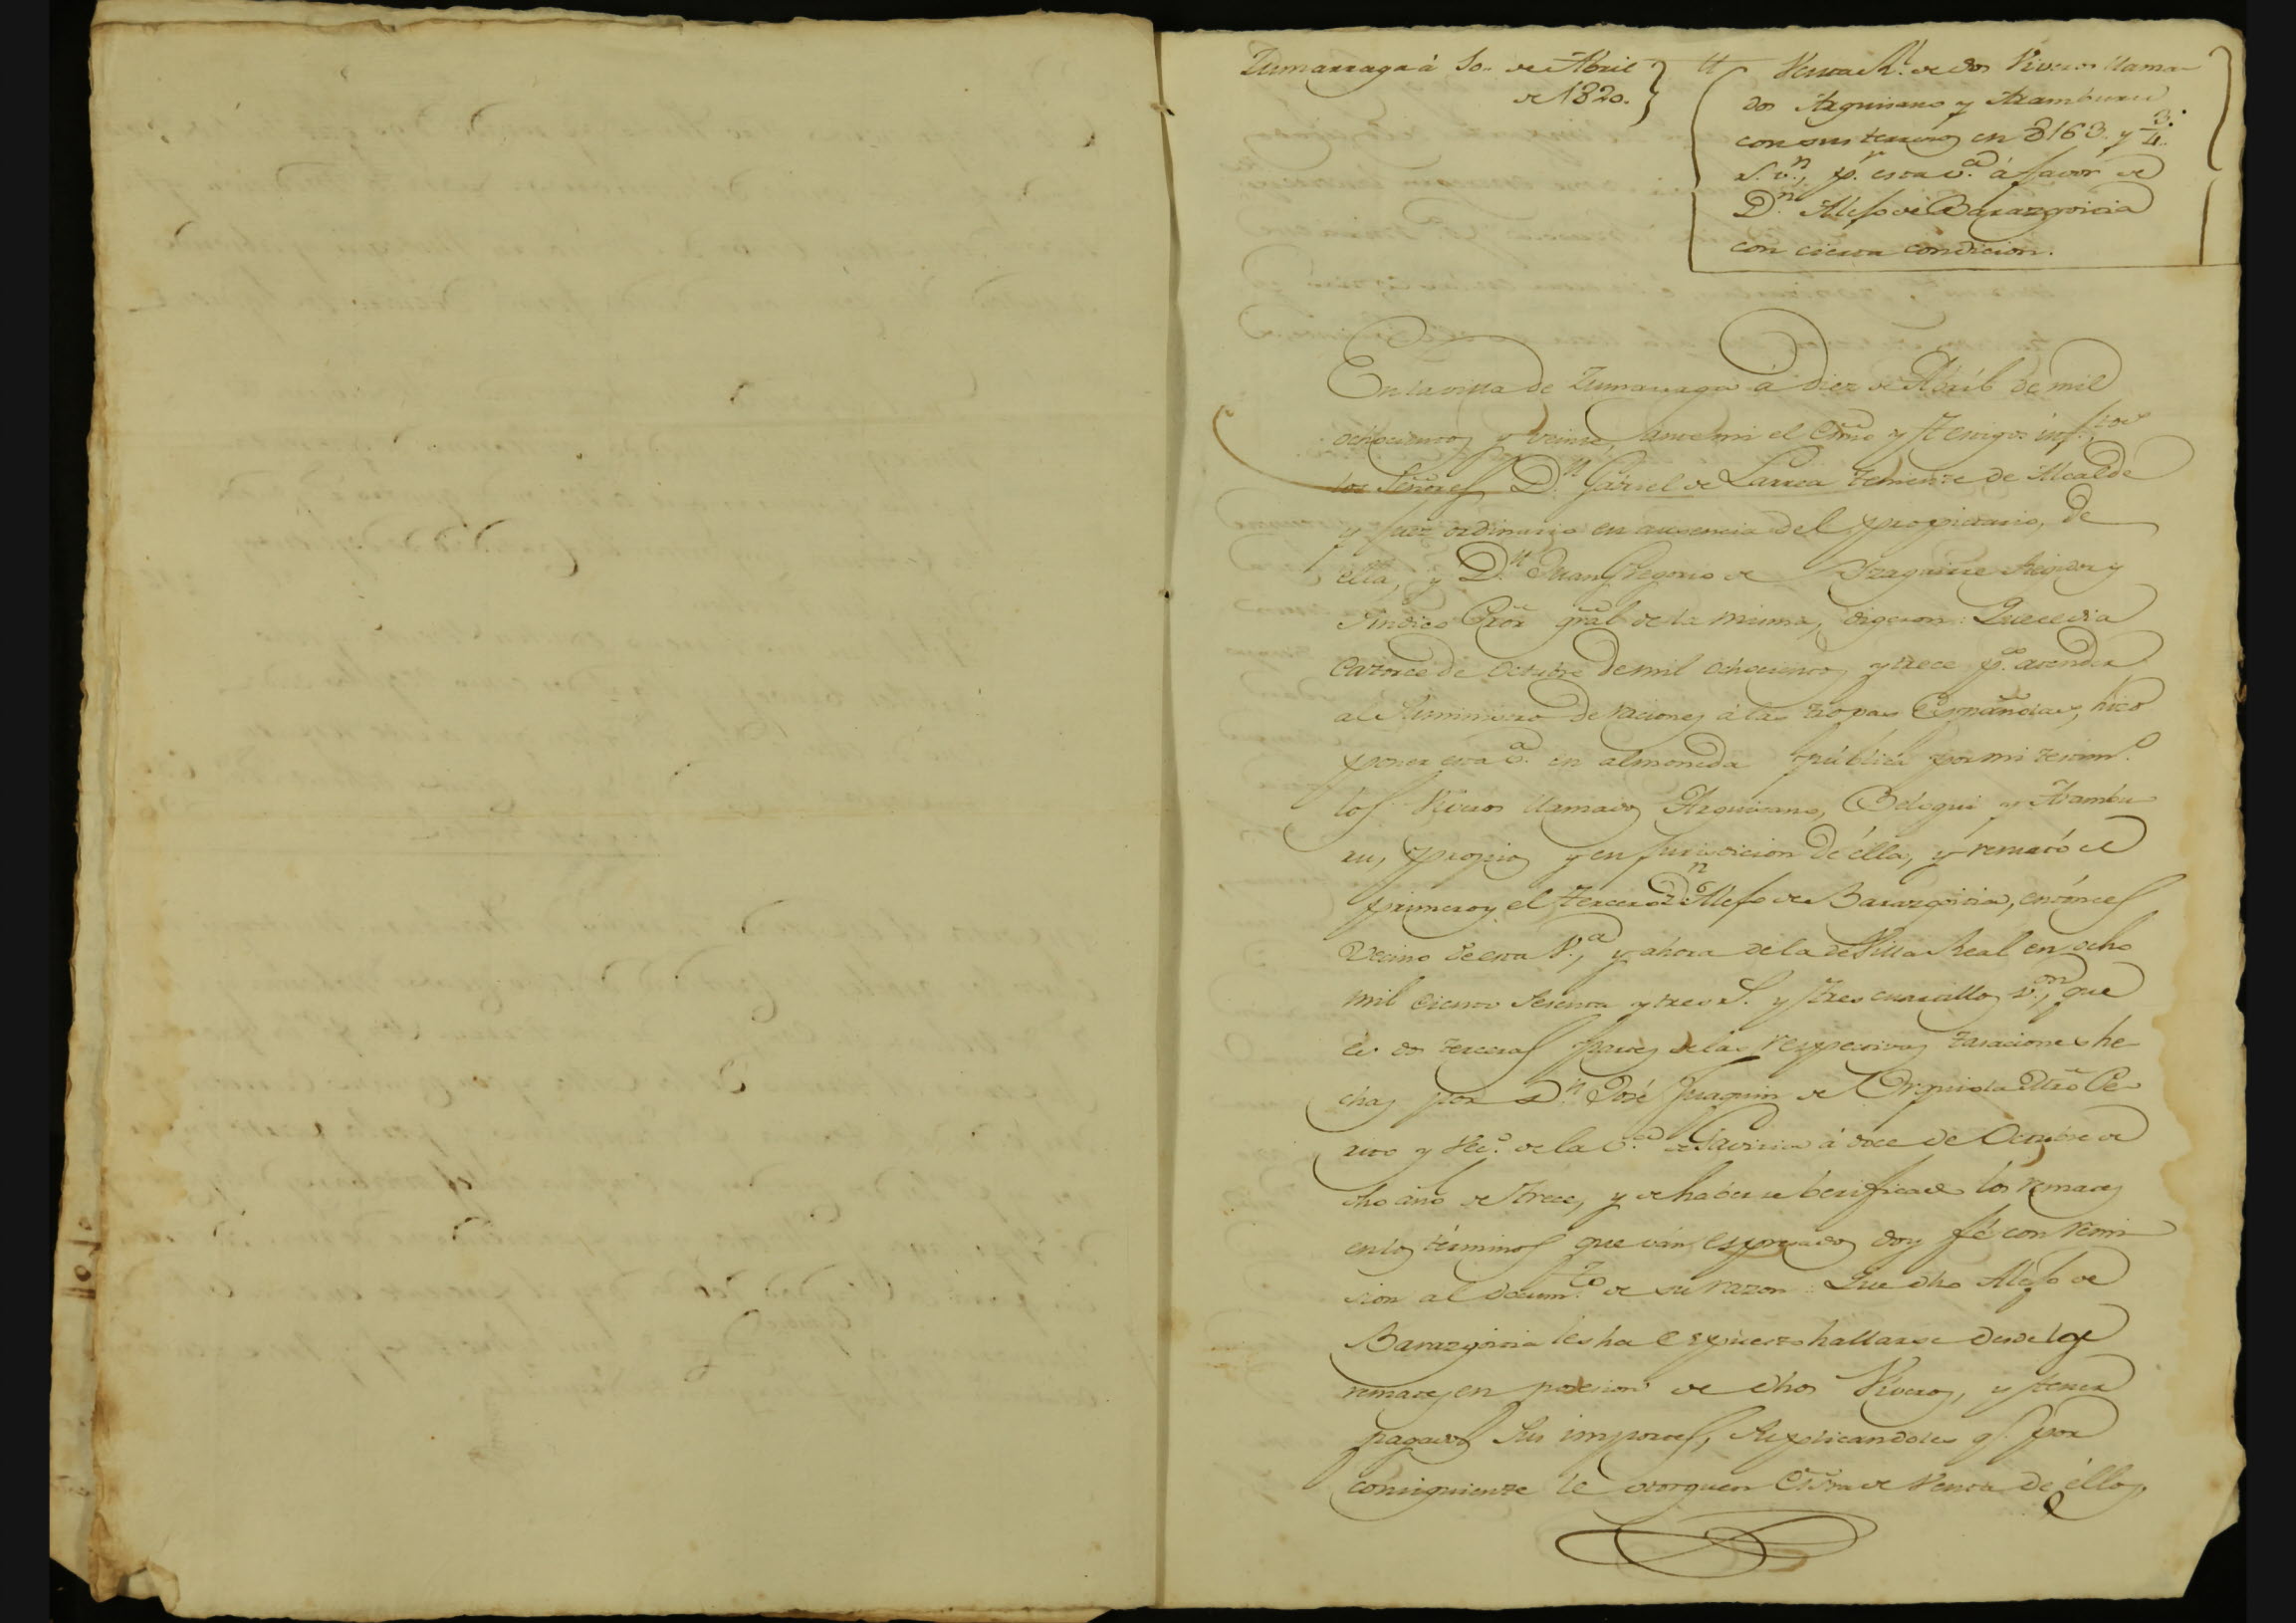 Zumarraga á 10. de Abril
de 1820.
Venta Rl. de dos Viveros llama-
dos Arguisano y Aramburu
con sus terrenos en 8163. y 3/4.
r.s v.n, p.r esta v.a á favor de
D.n Alefo de Barazgoicia
con cierta condicion.
En la villa de Zumarraga á diez de Abril de mil
ochocientos y veinte, ante mi el Esno y testigos infros
los Señores D.n Gabriel de Larrea teniente de Alcalde
y Juez ordinario en ausencia del propietario, de
ella, y D.n Juan Gregorio de Yzaguirre Regidor y
Sindico Pror gral de la misma, digeron: Que el dia
Catorce de Octubre de mil ochocientos y trece p.a atender
al Suministro de raciones á las tropas Españolas, hizo
poner esta v.a en almoneda pública por mi testim.o
los Viveros llamados Arguisano, Beloqui y Arambu-
ru, propios y en jurisdicion de élla, y remató el
primero y el tercero D.n Alefo de Barazgoicia, entónces
Vecino de esta V.a, y ahora de la de Villa Real en ocho
mil ciento Sesenta y tres r.s y tres cuartillos v.on, que
es dos terceras partes de las respectivas tasaciones he-
chas por D.n José Joaquin de Mro Pe-
rito y Vec.o de la v.a de Gaviria á doce de Octubre de
dho año de trece, y de haberse berificado los remates
en los términos que ván espresados doy fé con remi-
sion al docum.to de su razon: Que dho Alefo de
Barazgoicia les ha espuesto hallarse desde los
remates en posesion de dhos Viveros, y tener
pagados sus importes, Suplicandoles q.e por
consiguiente le otorguen Esra de Venta de éllos,